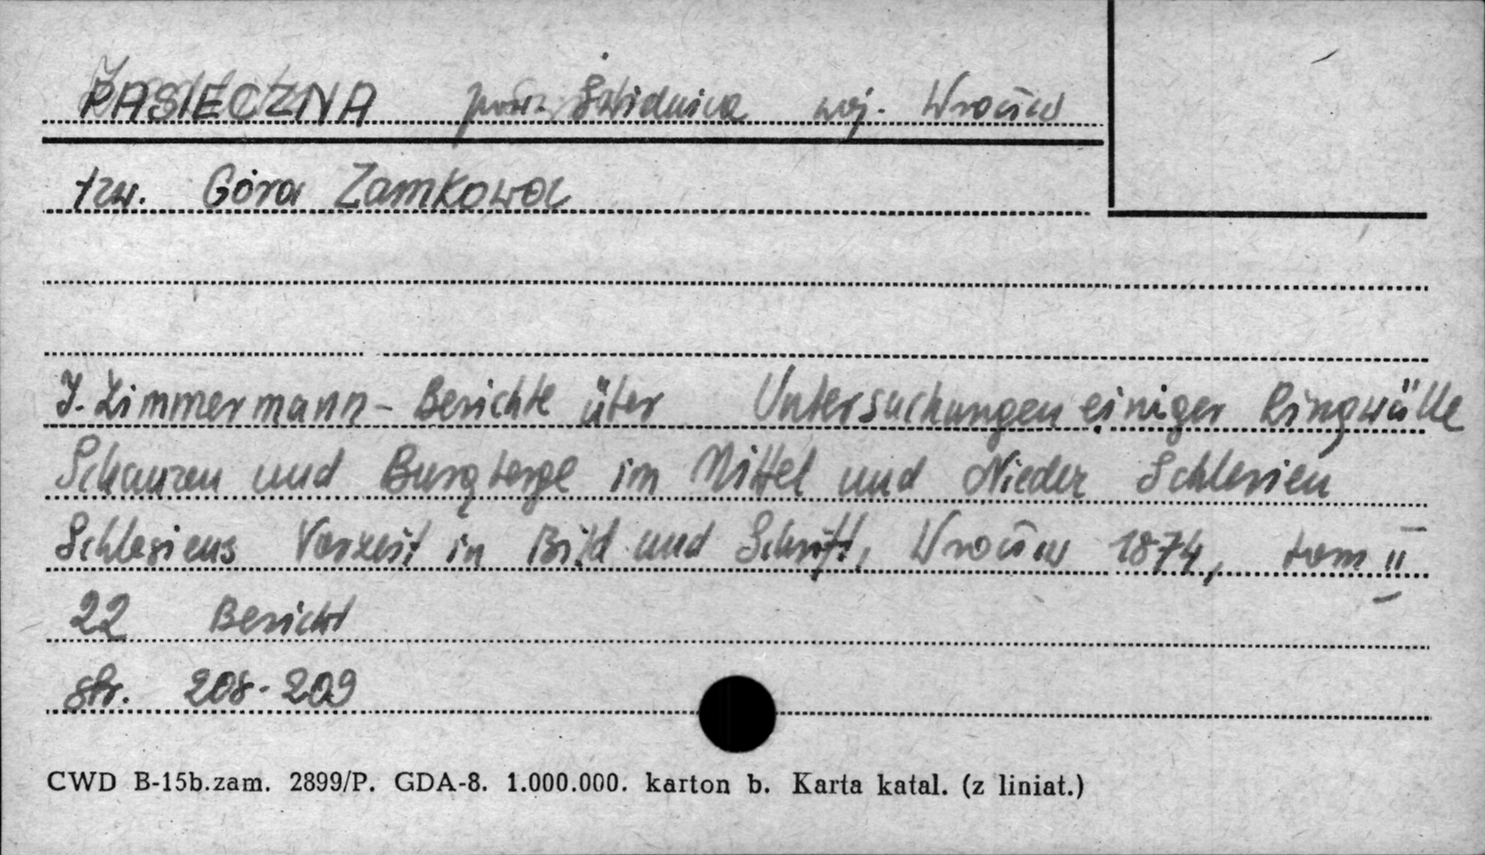 PASIECZNA pow. Świdnica woj. Wrocław
tzw. Góra Zamkowa
J. Zimmermann - Berichte über Untersuchungen einiger Ringwälle
Schanzen und Burgberge im Mittel und Nieder Schlesien
Schlesiens Vorzeit in Bild und Schrift, Wrocław 1874, tom II
22 Bericht
str. 208-209
CWD B-15b.zam. 2899/P. GDA-8. 1.000.000. karton b. Karta katal. (z liniat.)